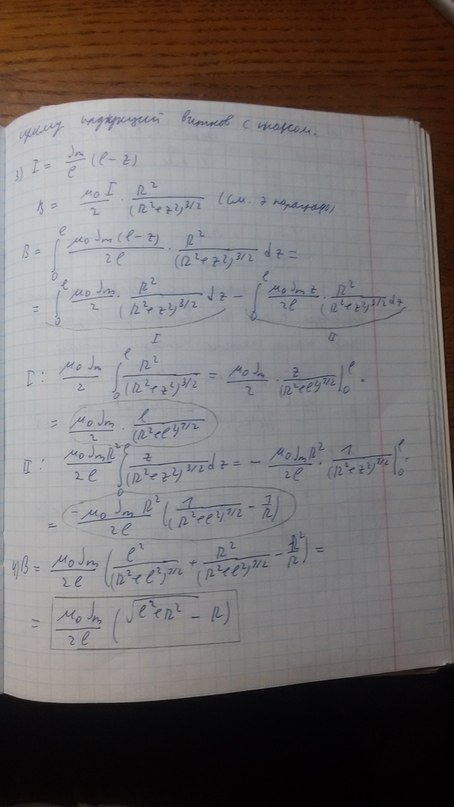 сумму индукций витков с током.
3) I = Jm/ℓ (ℓ-z)
B = μ₀I/2 · R²/(R²+z²)^3/2 (см. 7 параграф)
B = ∫₀^ℓ μ₀Jm(ℓ-z)/2ℓ · R²/(R²+z²)^3/2 dz =
= ∫₀^ℓ μ₀Jm/2 · R²/(R²+z²)^3/2 dz - ∫₀^ℓ μ₀Jm z/2ℓ · R²/(R²+z²)^3/2 dz
I II
I: μ₀Jm/2 ∫₀^ℓ R²/(R²+z²)^3/2 = μ₀Jm/2 · z/(R²+ℓ²)^1/2 |₀^ℓ =
= μ₀Jm/2 · ℓ/(R²+ℓ²)^1/2
II: μ₀JmR²/2ℓ ∫₀^ℓ z/(R²+z²)^3/2 dz = - μ₀JmR²/2ℓ · 1/(R²+z²)^1/2 |₀^ℓ =
= -μ₀JmR²/2ℓ (1/(R²+ℓ²)^1/2 - 1/R)
4) B = μ₀Jm/2ℓ (ℓ²/(R²+ℓ²)^1/2 + R²/(R²+ℓ²)^1/2 - R²/R) =
= μ₀Jm/2ℓ (√ℓ²+R² - R)